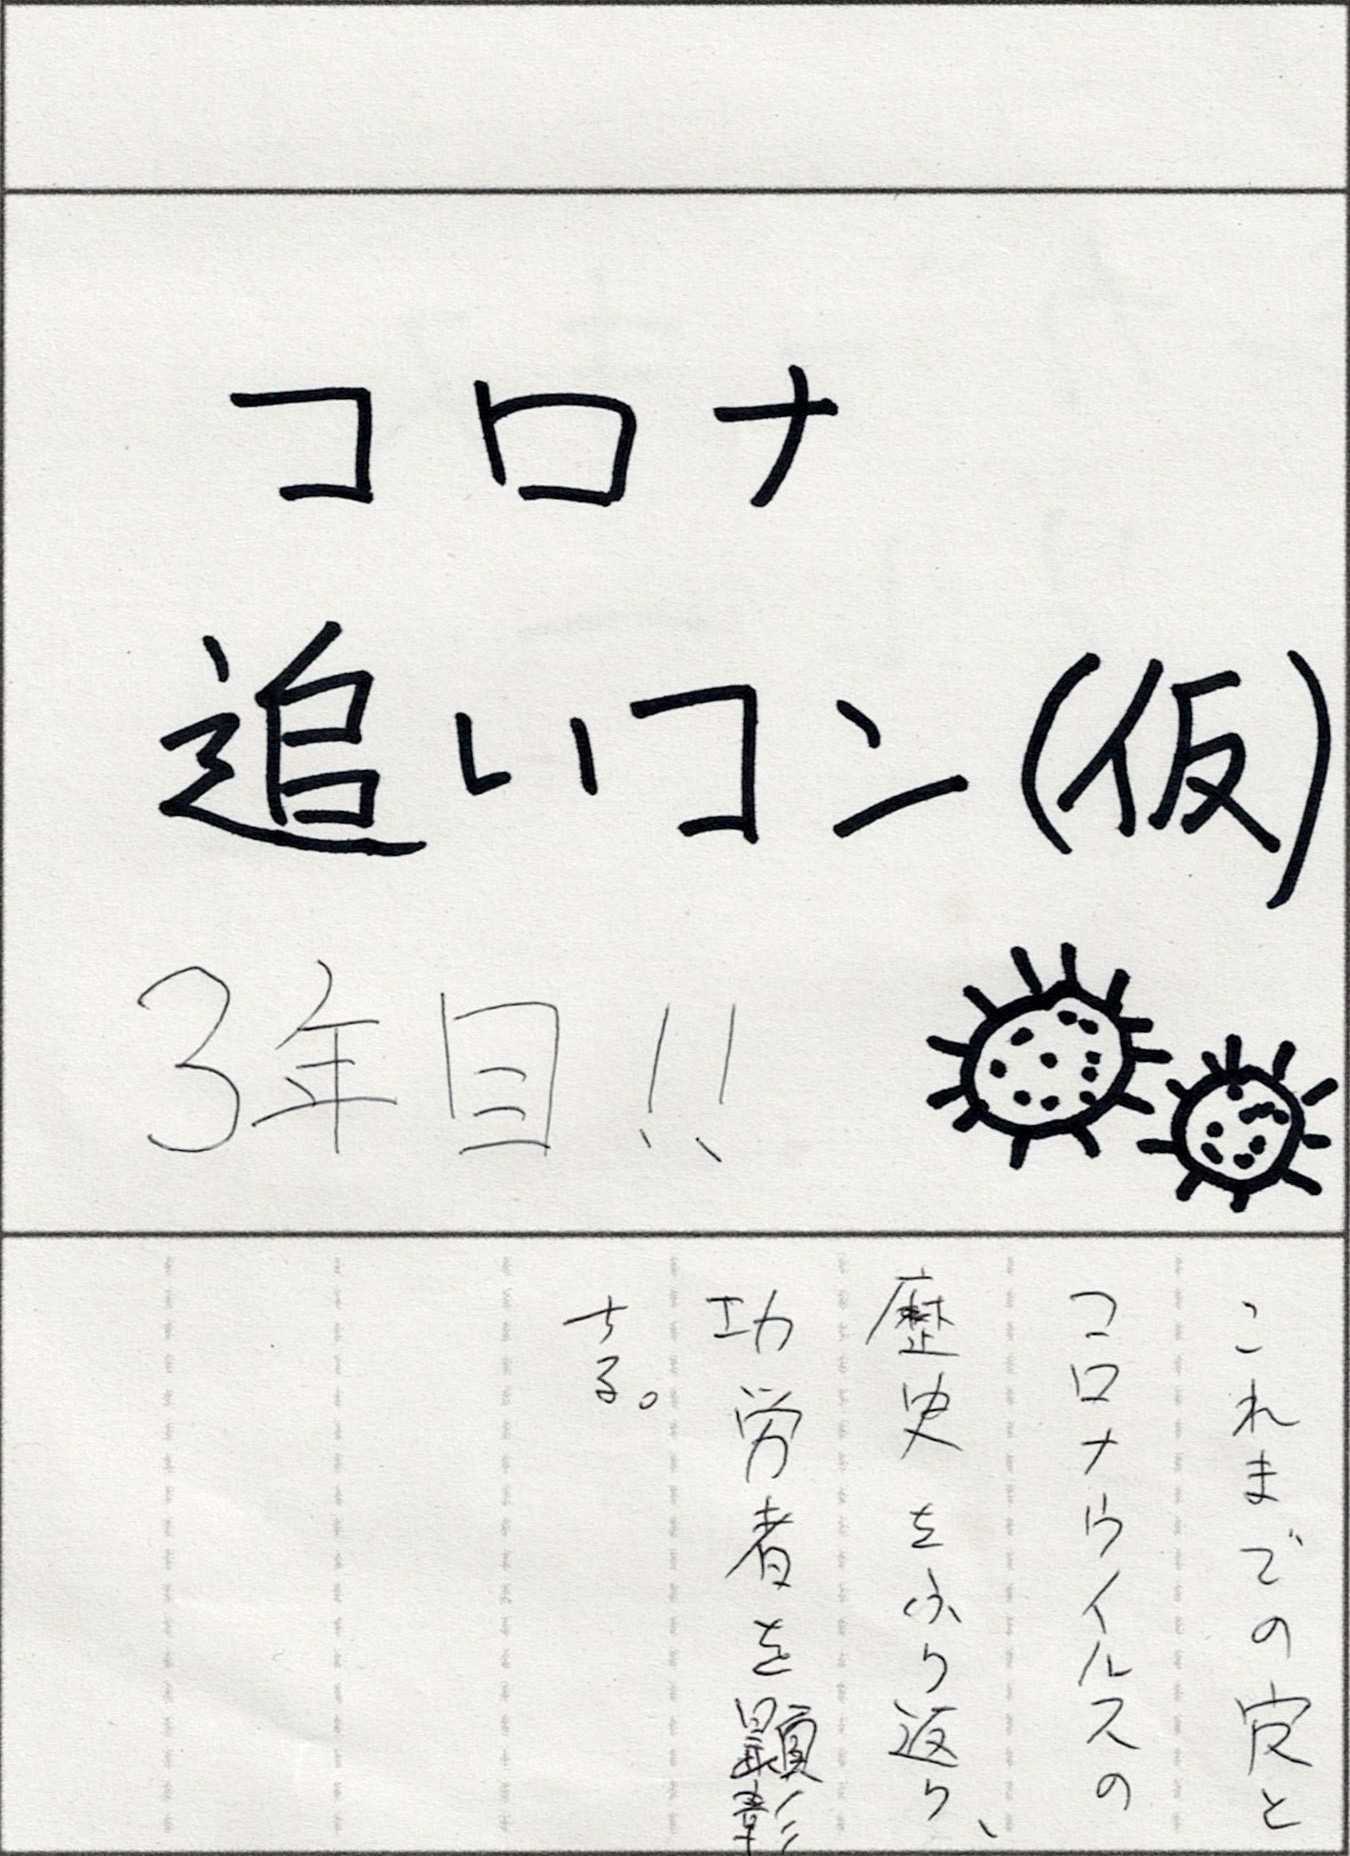 コロナ
追いコン(仮)
3年目!!
これまでのと
コロナウイルスの
歴史をふり返り、
功労者を顕彰
する。